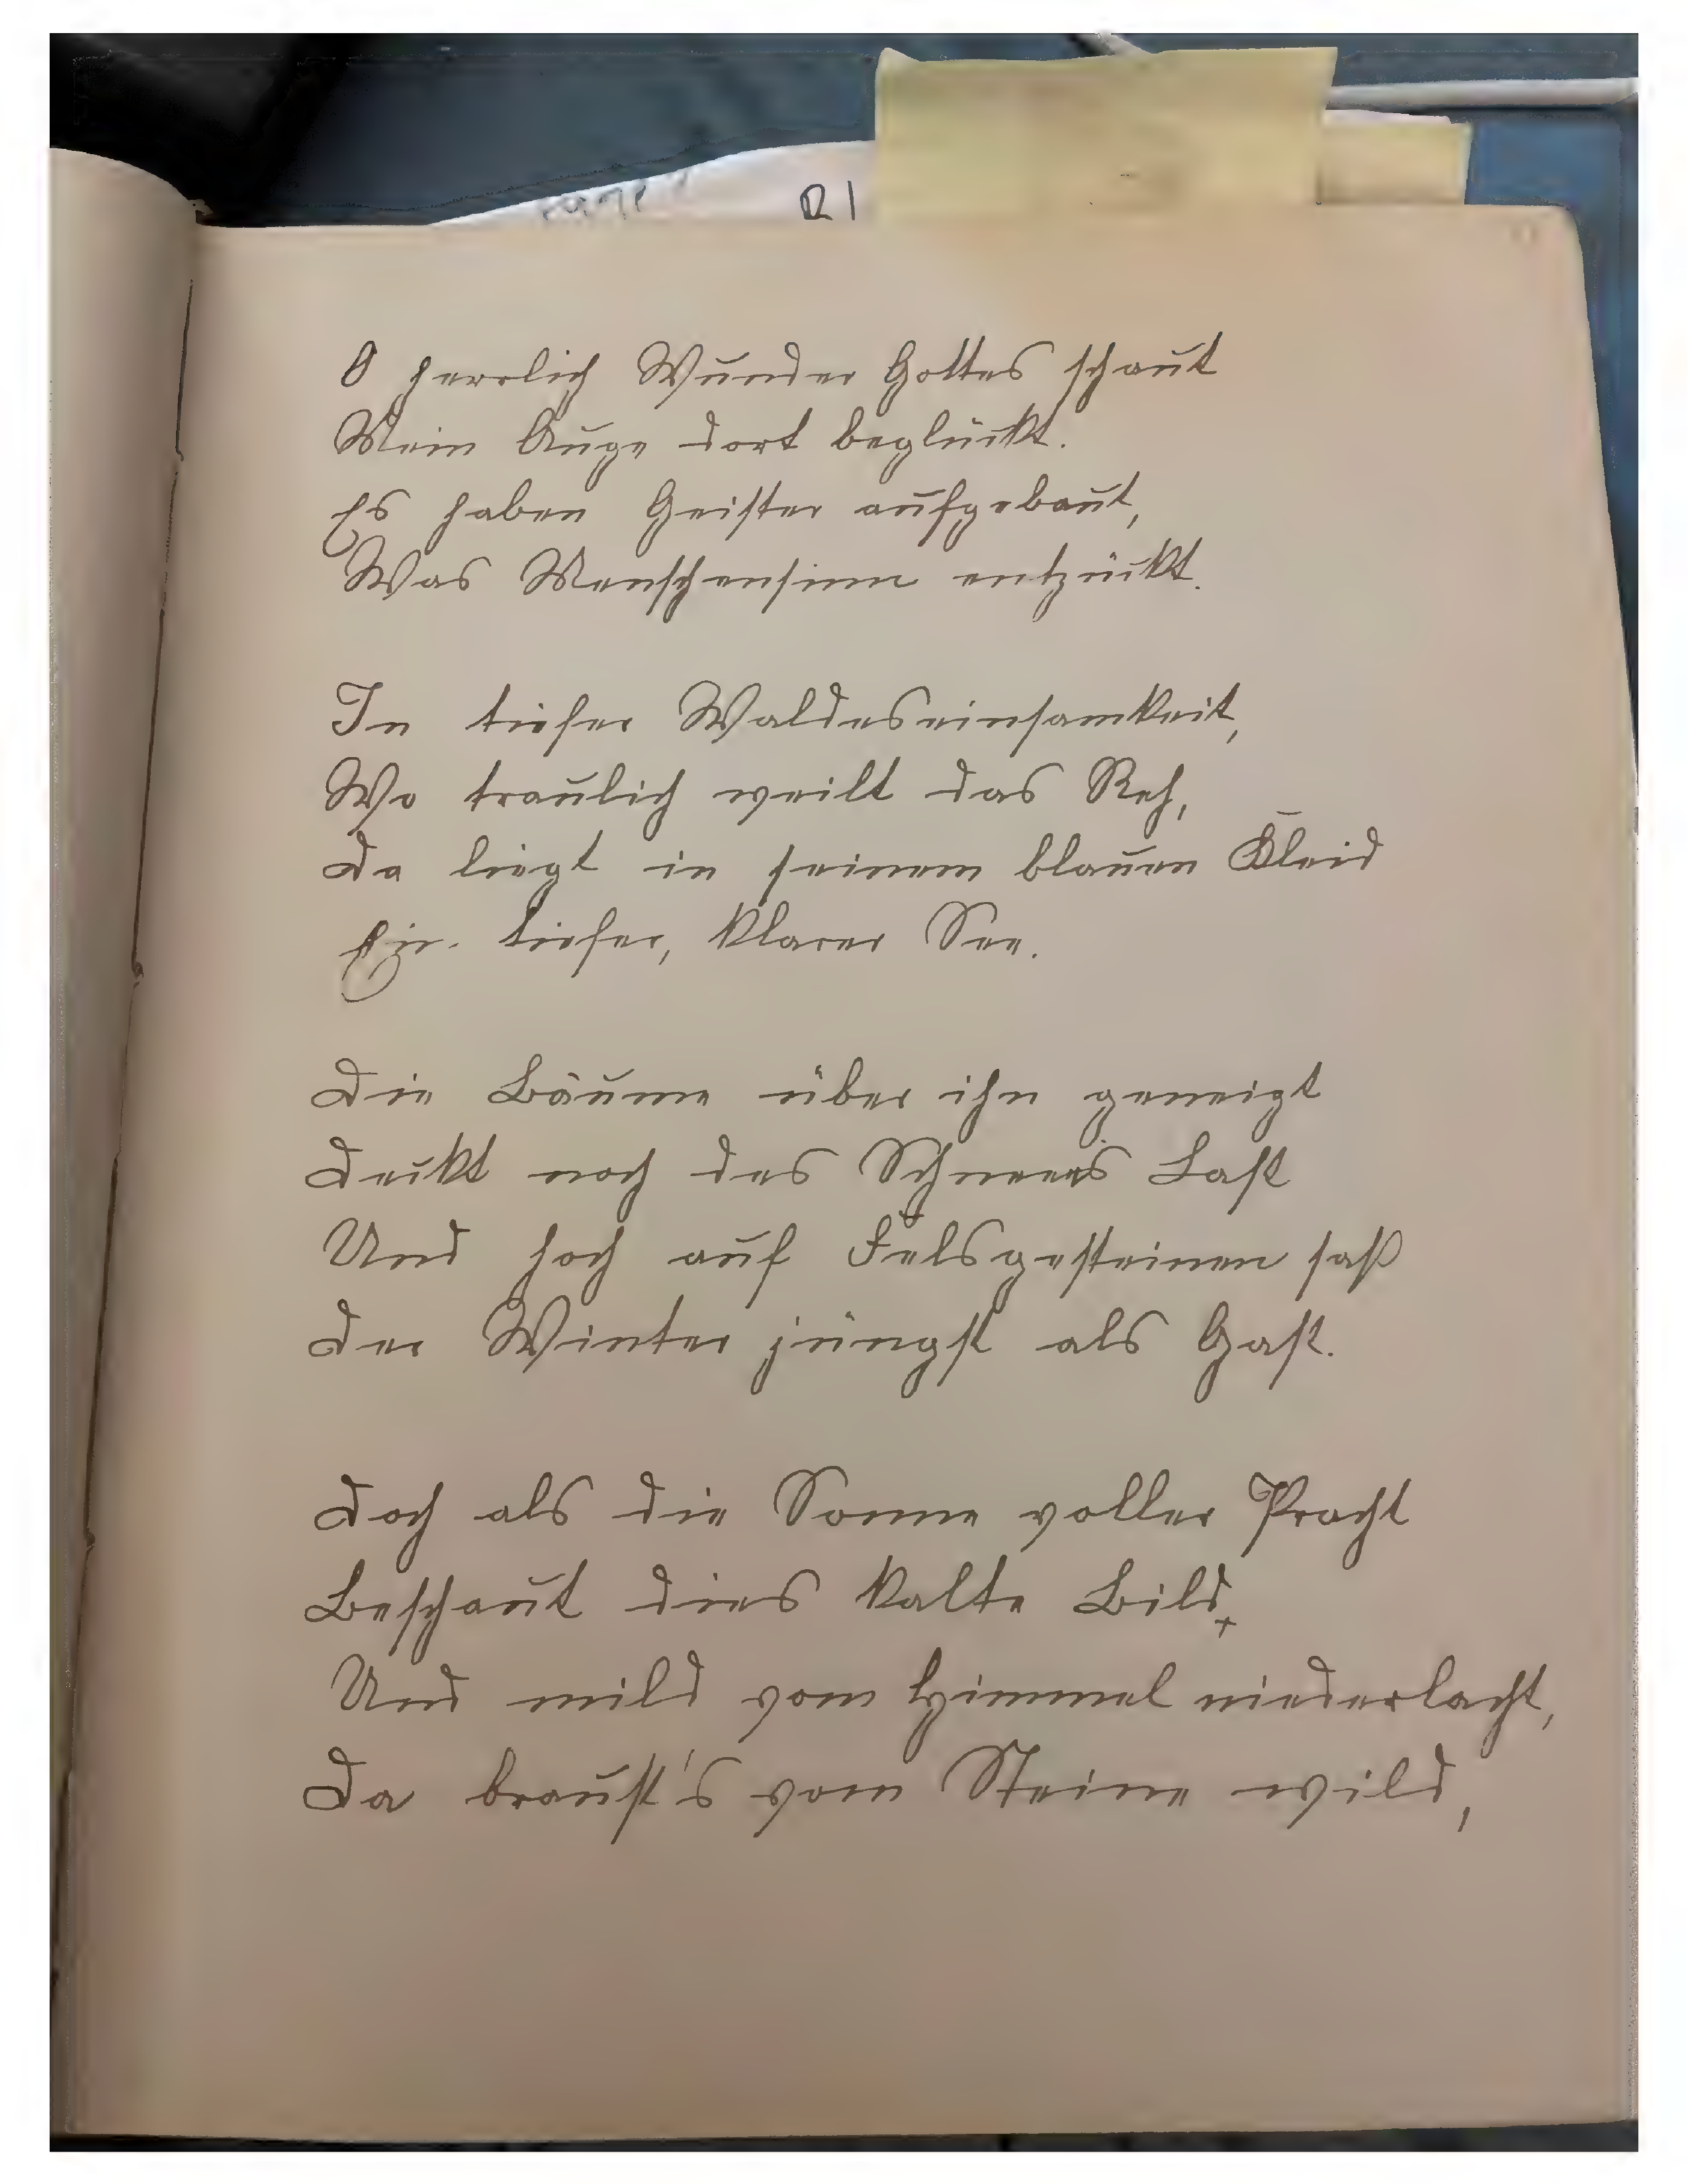 O herrlich Wunder Gottes schaut
Mein Auge dort beglückt.
Es haben Geister aufgebaut,
Was Menschensinn entzückt.
In tiefer Waldeseinsamkeit,
Wo traulich weilt das Reh,
Da liegt in seinem blauen Kleid
Ein tiefer, klarer See.
Die Bäume über ihn geneigt
Deckt noch des Schnees Last
Und hoch auf Felsgesteinen saß
Der Winter jüngst als Gast.
Doch als die Sonne voller Pracht
Beschaut dies kalte Bild,
Und mild vom Himmel niederlacht,
Da braust's vom Steine wild,